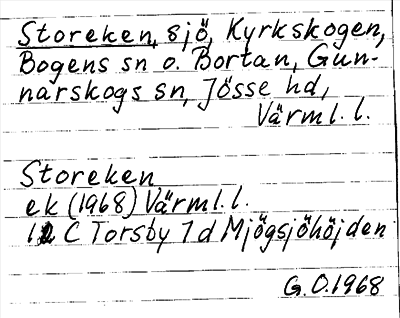 Storeken, sjö, Kyrkskogen,
Bogens sn o. Bortan, Gun-
narskogs sn, Jösse hd,
Värml. l.
Storeken
ek (1968) Värml. l.
12 C Torsby 7d Mjögsjöhöjden
G.O.1968